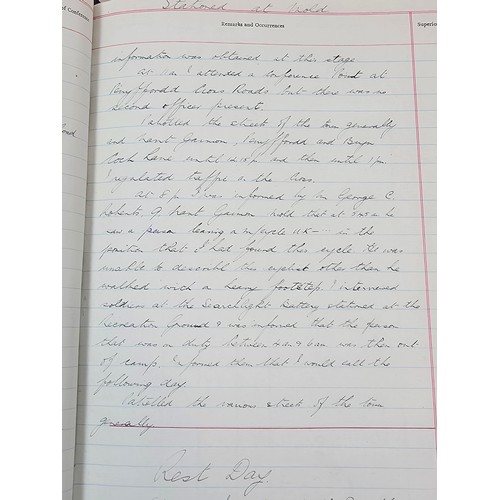 Stationed at Mold
Remarks and Occurrences
Superior
information was obtained at this stage
At 11am I attended a Conference Point at
Penyffordd Cross Roads but there was no
second officer present.
I patrolled the streets of the town generally
and Nant Garmon, Penyffordd and Bryn
Coch Lane until 12.15pm and then until 1pm
I regulated traffic on the Cross.
At 8pm I was informed by Mr George C
Roberts, 9 Nant Garmon Mold that at 3.45am he
saw a person leaving a m/cycle UK- in the
position that I had found this cycle. He was
unable to describe this cyclist other than he
walked with a heavy footstep. I interviewed
soldiers at the Searchlight Battery stationed at the
Recreation Ground & was informed that the person
that was on duty between 4am & 6am was then out
of camp. Informed them that I would call the
following day.
Patrolled the various streets of the town
generally.
Rest Day